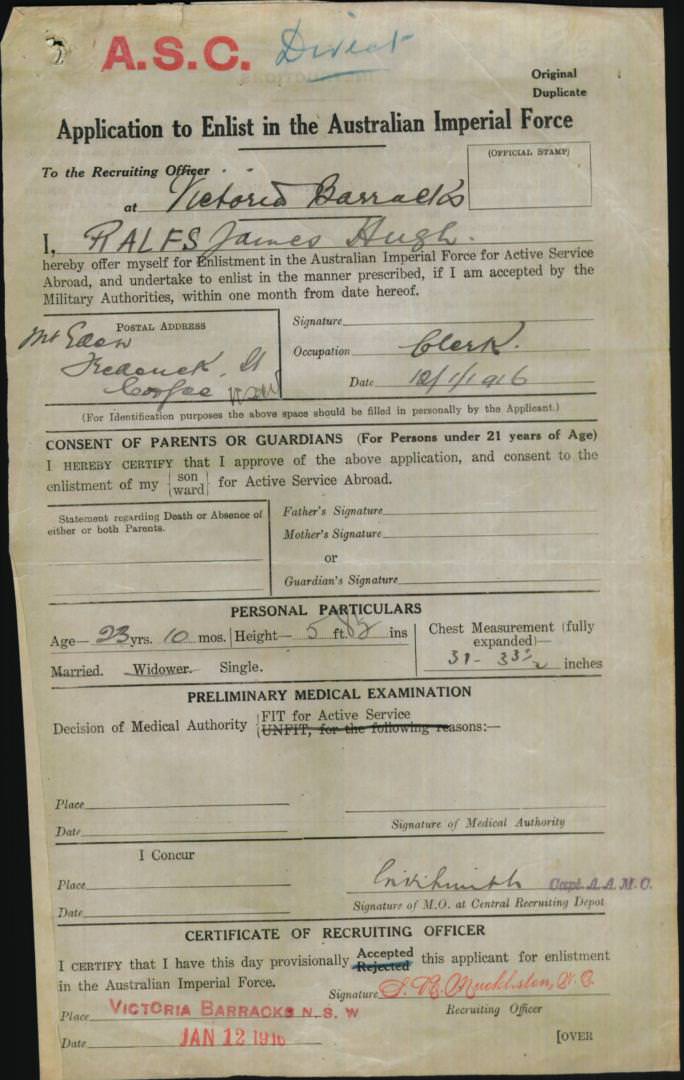 A.S.C. Direct
Original
Duplicate
Application to Enlist in the Australian Imperial Force
(OFFICIAL STAMP)
To the Recruiting Officer
at Victoria Barracks
I, RALFS James Hugh.
hereby offer myself for Enlistment in the Australian Imperial Force for Active Service
Abroad, and undertake to enlist in the manner prescribed, if I am accepted by the
Military Authorities, within one month from date hereof.
POSTAL ADDRESS
Mt Eden
Frederick St
Coogee NSW
Signature
Occupation Clerk.
Date 12/1/1916
(For Identification purposes the above space should be filled in personally by the Applicant.)
CONSENT OF PARENTS OR GUARDIANS (For Persons under 21 years of Age)
I HEREBY CERTIFY that I approve of the above application, and consent to the
enlistment of my {son ward} for Active Service Abroad.
Statement regarding Death or Absence of
either or both Parents.
Father's Signature
Mother's Signature
or
Guardian's Signature
PERSONAL PARTICULARS
Age—23 yrs. 10 mos. Height— 5 ft. ins
Chest Measurement (fully
expanded)—
31 - 33½ inches
Married. Widower. Single.
PRELIMINARY MEDICAL EXAMINATION
Decision of Medical Authority {FIT for Active Service
UNFIT, for the following reasons:—
Place
Date
Signature of Medical Authority
I Concur
Place
Capt. A.A.M.C.
Date
Signature of M.O. at Central Recruiting Depot
CERTIFICATE OF RECRUITING OFFICER
I CERTIFY that I have this day provisionally Accepted Rejected this applicant for enlistment
in the Australian Imperial Force.
Signature
Place VICTORIA BARRACKS N.S.W
Recruiting Officer
Date JAN 12 1916
[OVER